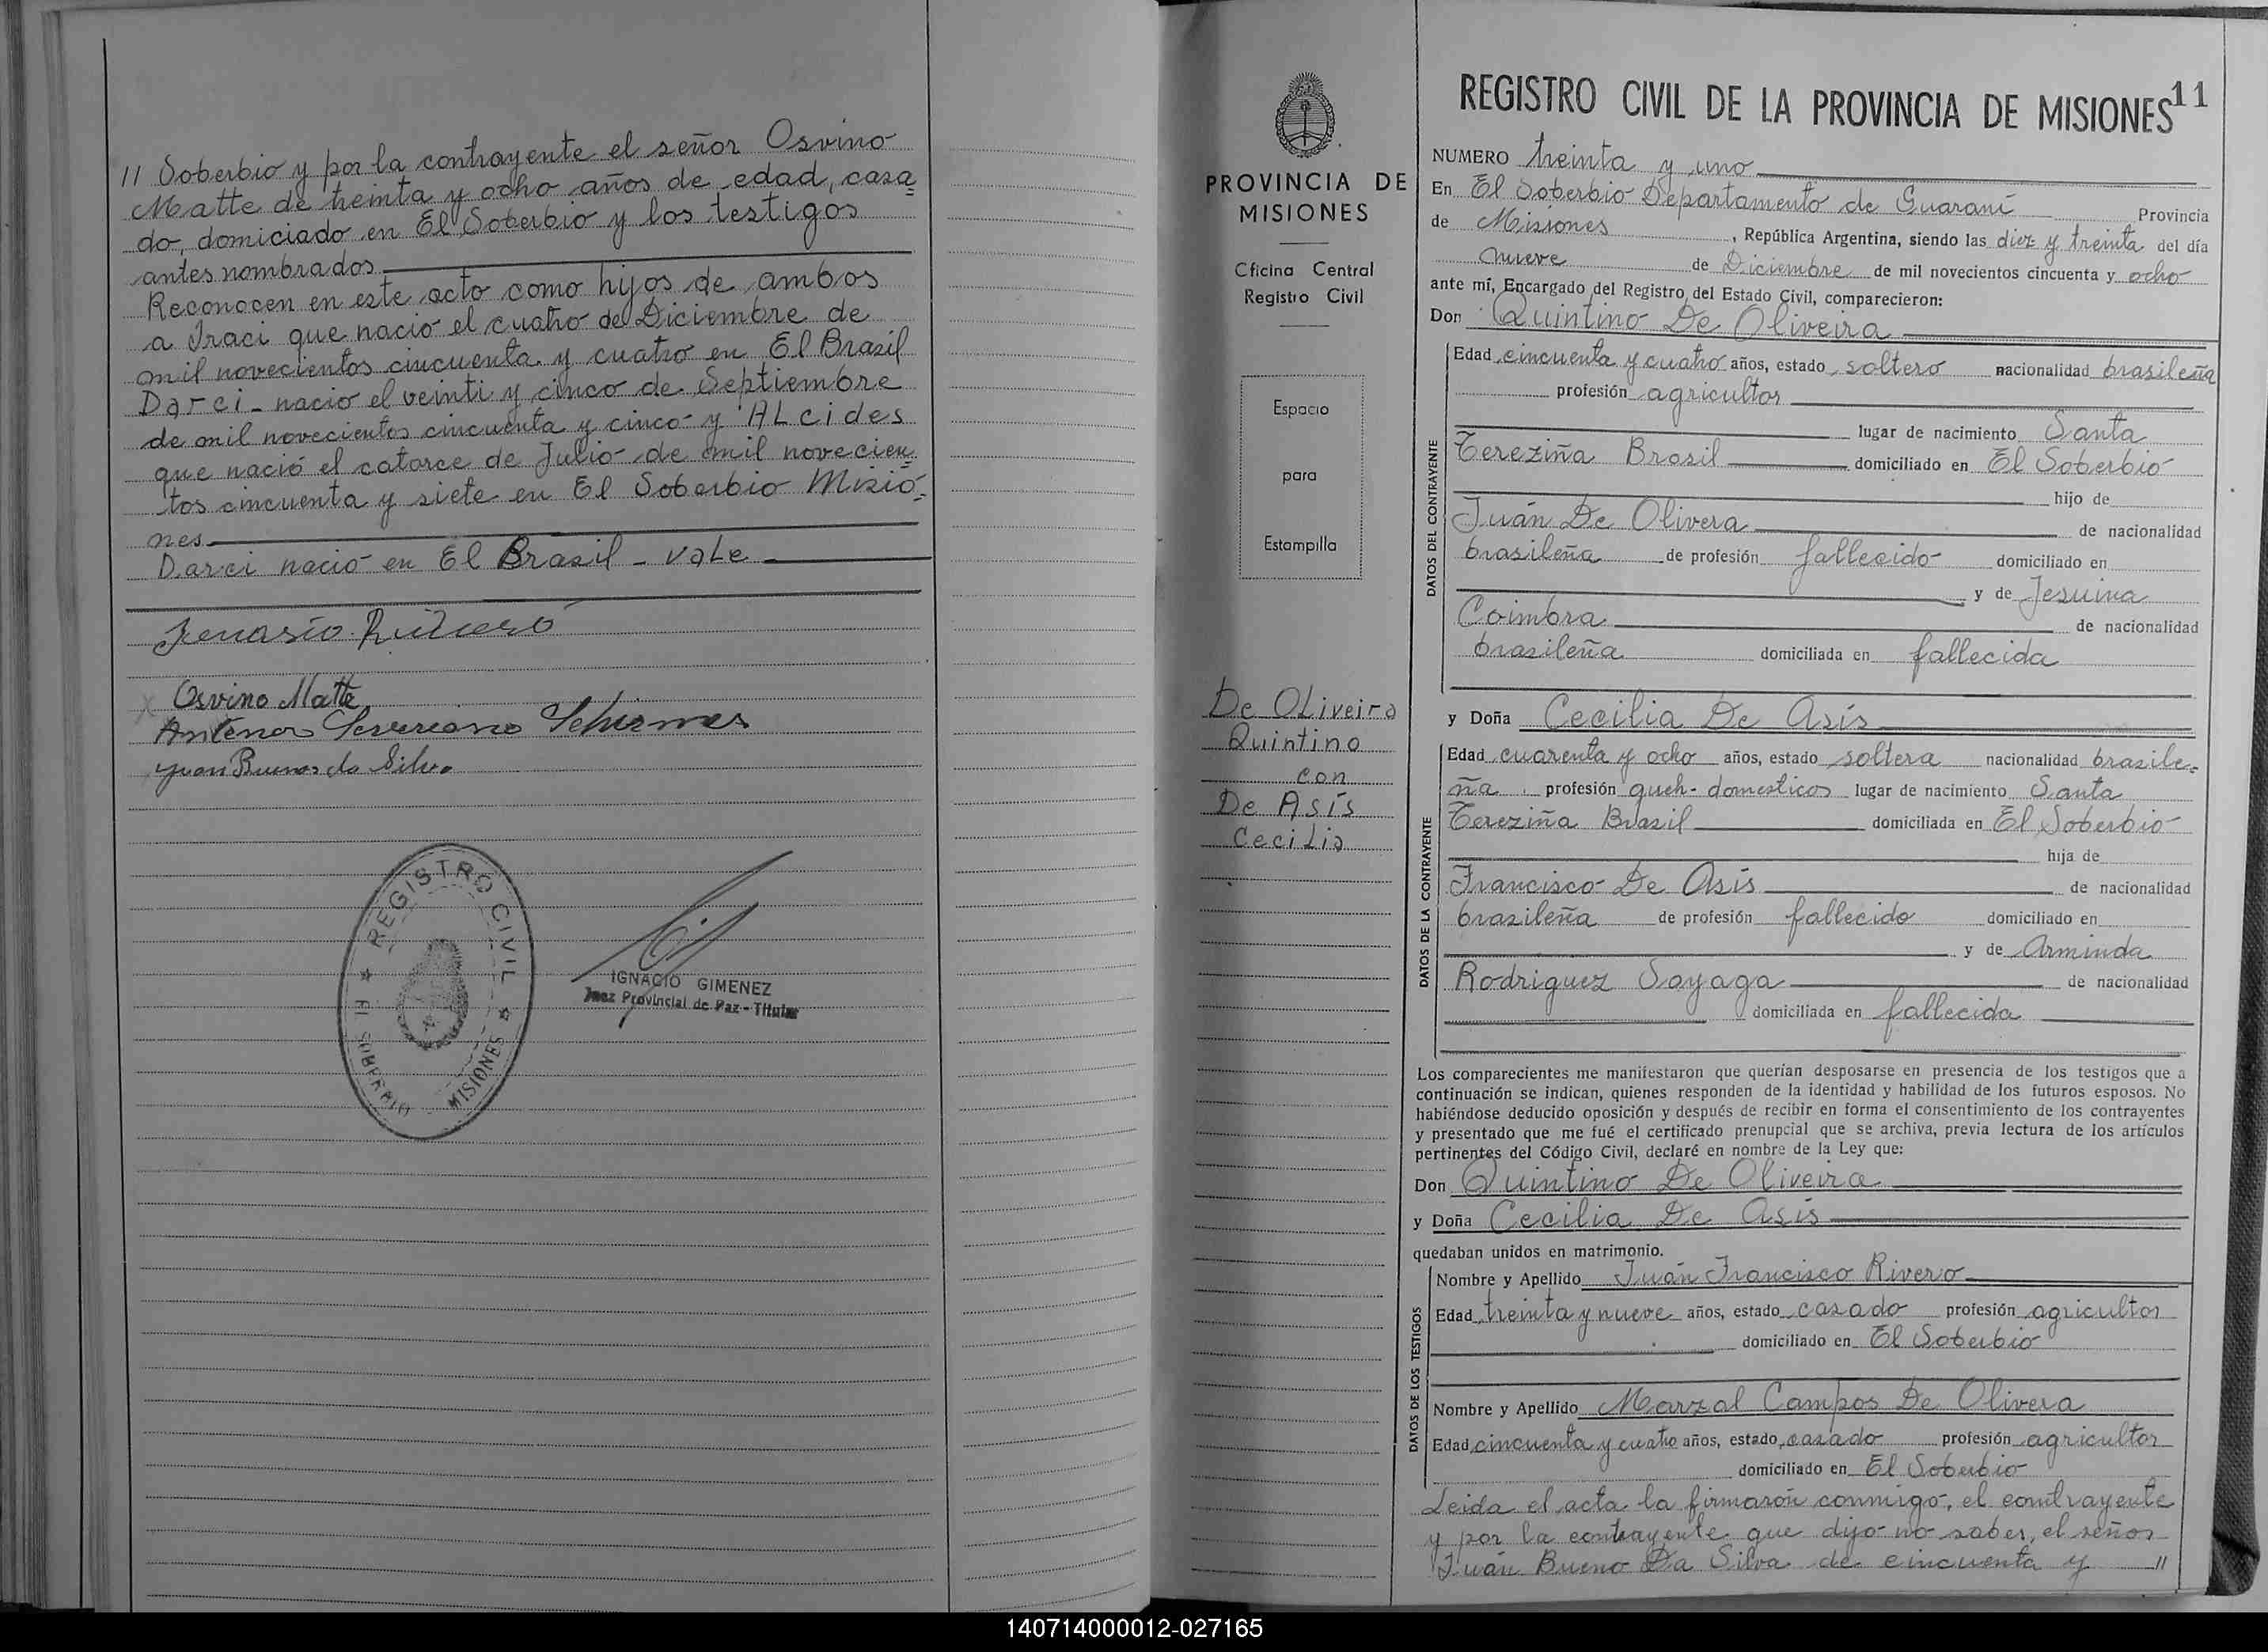 11 Soberbio y por la contrayente el señor Osvino
Matte de treinta y ocho años de edad, casa=
do, domiciado en El Soberbio y los testigos
antes nombrados
Reconocen en este acto como hijos de ambos
a Iraci que nació el cuatro de Diciembre de
mil novecientos cincuenta y cuatro en El Brasil
Darci - nació el veinti y cinco de Septiembre
de mil novecientos cincuenta y cinco y ALcides
que nació el catorce de Julio de mil novecien=
tos cincuenta y siete en El Soberbio Misio=
nes
Darci nació en El Brasil - vaLe
Osvino Matte
Antenor Severiano
Juan Bueno da Silva
REGISTRO CIVIL
EL SOBERBIO MISIONES
IGNACIO GIMENEZ
Juez Provincial de Paz - Titular
PROVINCIA DE
MISIONES
Oficina Central
Registro Civil
Espacio
para
Estampilla
De OLiveira
Quintino
con
De Asís
CeciLia
REGISTRO CIVIL DE LA PROVINCIA DE MISIONES 11
NUMERO treinta y uno
En El Soberbio Departamento de Guaraní Provincia
de Misiones, República Argentina, siendo las diez y treinta del día
nueve de Diciembre de mil novecientos cincuenta y ocho
ante mí, Encargado del Registro del Estado Civil, comparecieron:
Don Quintino De Oliveira
DATOS DEL CONTRAYENTE
Edad cincuenta y cuatro años, estado soltero nacionalidad brasileña
profesión agricultor
lugar de nacimiento Santa
Tereziña Brasil domiciliado en El Soberbio
hijo de
Juán De Olivera de nacionalidad
brasileña de profesión fallecido domiciliado en
y de Jesuina
Coimbra de nacionalidad
brasileña domiciliada en fallecida
y Doña Cecilia De Asís
DATOS DE LA CONTRAYENTE
Edad cuarenta y ocho años, estado soltera nacionalidad brasile=
ña profesión queh- domesticos lugar de nacimiento Santa
Tereziña Brasil domiciliada en El Soberbio
hija de
Francisco De Asís de nacionalidad
brasileña de profesión fallecido domiciliado en
y de Arminda
Rodriguez Sayaga de nacionalidad
domiciliada en fallecida
Los comparecientes me manifestaron que querían desposarse en presencia de los testigos que a
continuación se indican, quienes responden de la identidad y habilidad de los futuros esposos. No
habiéndose deducido oposición y después de recibir en forma el consentimiento de los contrayentes
y presentado que me fué el certificado prenupcial que se archiva, previa lectura de los artículos
pertinentes del Código Civil, declaré en nombre de la Ley que:
Don Quintino De Oliveira
y Doña Cecilia De Asís
quedaban unidos en matrimonio.
DATOS DE LOS TESTIGOS
Nombre y Apellido Juán Francisco Rivero
Edad treinta y nueve años, estado casado profesión agricultor
domiciliado en El Soberbio
Nombre y Apellido Marzal Campos De Olivera
Edad cincuenta y cuatro años, estado casado profesión agricultor
domiciliado en El Soberbio
Leida el acta la firmarón conmigo, el contrayente
y por la contrayente que dijo no saber, el señor
Juán Bueno Da Silva de cincuenta y 11
140714000012-027165